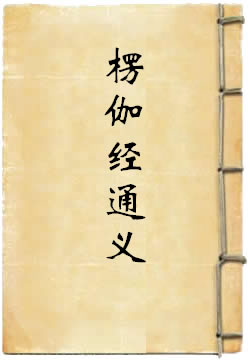 楞伽经通义